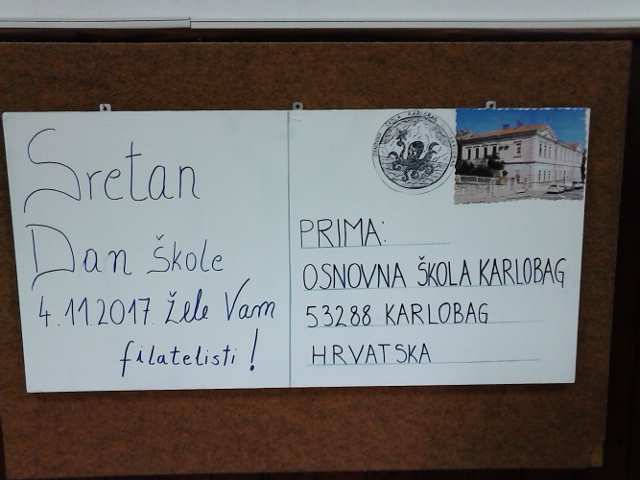 Sretan
Dan škole
4.11.2017. žele Vam
filatelisti!
PRIMA:
OSNOVNA ŠKOLA KARLOBAG
53288 KARLOBAG
HRVATSKA
OSNOVNA ŠKOLA KARLOBAG